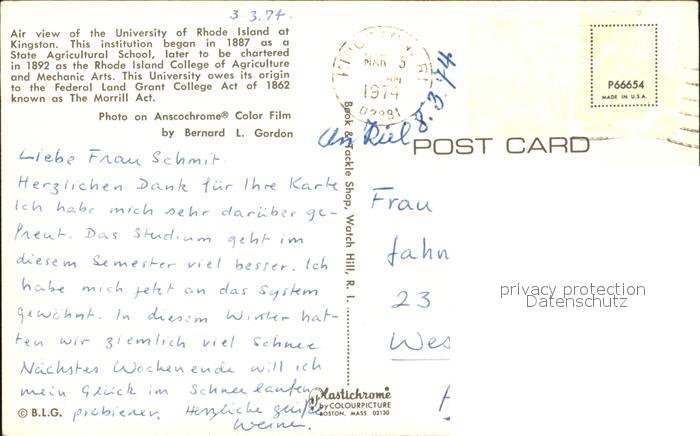 3 3.74.
Air view of the University of Rhode Island at
Kingston. This institution began in 1887 as a
State Agricultural School, later to be chartered
in 1892 as the Rhode Island College of Agriculture
and Mechanic Arts. This University owes its origin
to the Federal Land Grant College Act of 1862
known as The Morrill Act.
Photo on Anscochrome® Color Film
by Bernard L. Gordon
Liebe Frau Schmit.
Herzlichen Dank für Ihre Karte
Ich habe mich sehr darüber ge-
freut. Das Studium geht im
diesem Semester viel besser. Ich
habe mich jetzt an das System
gewöhnt. In diesem Winter hat-
ten wir ziemlich viel Schnee
Nächstes Wochenende will ich
mein Glück im Schneelaufen
probieren. Herzliche Grüße
Werner.
© B.L.G.
Book & Tackle Shop, Watch Hill, R. I.
Plastichrome
by COLOURPICTURE
BOSTON, MASS. 02130
MAR 3
1974
02891
an Kiel 8.3.74
POST CARD
P66654
MADE IN U.S.A.
Frau
Jahn
23
Wes
privacy protection
Datenschutz